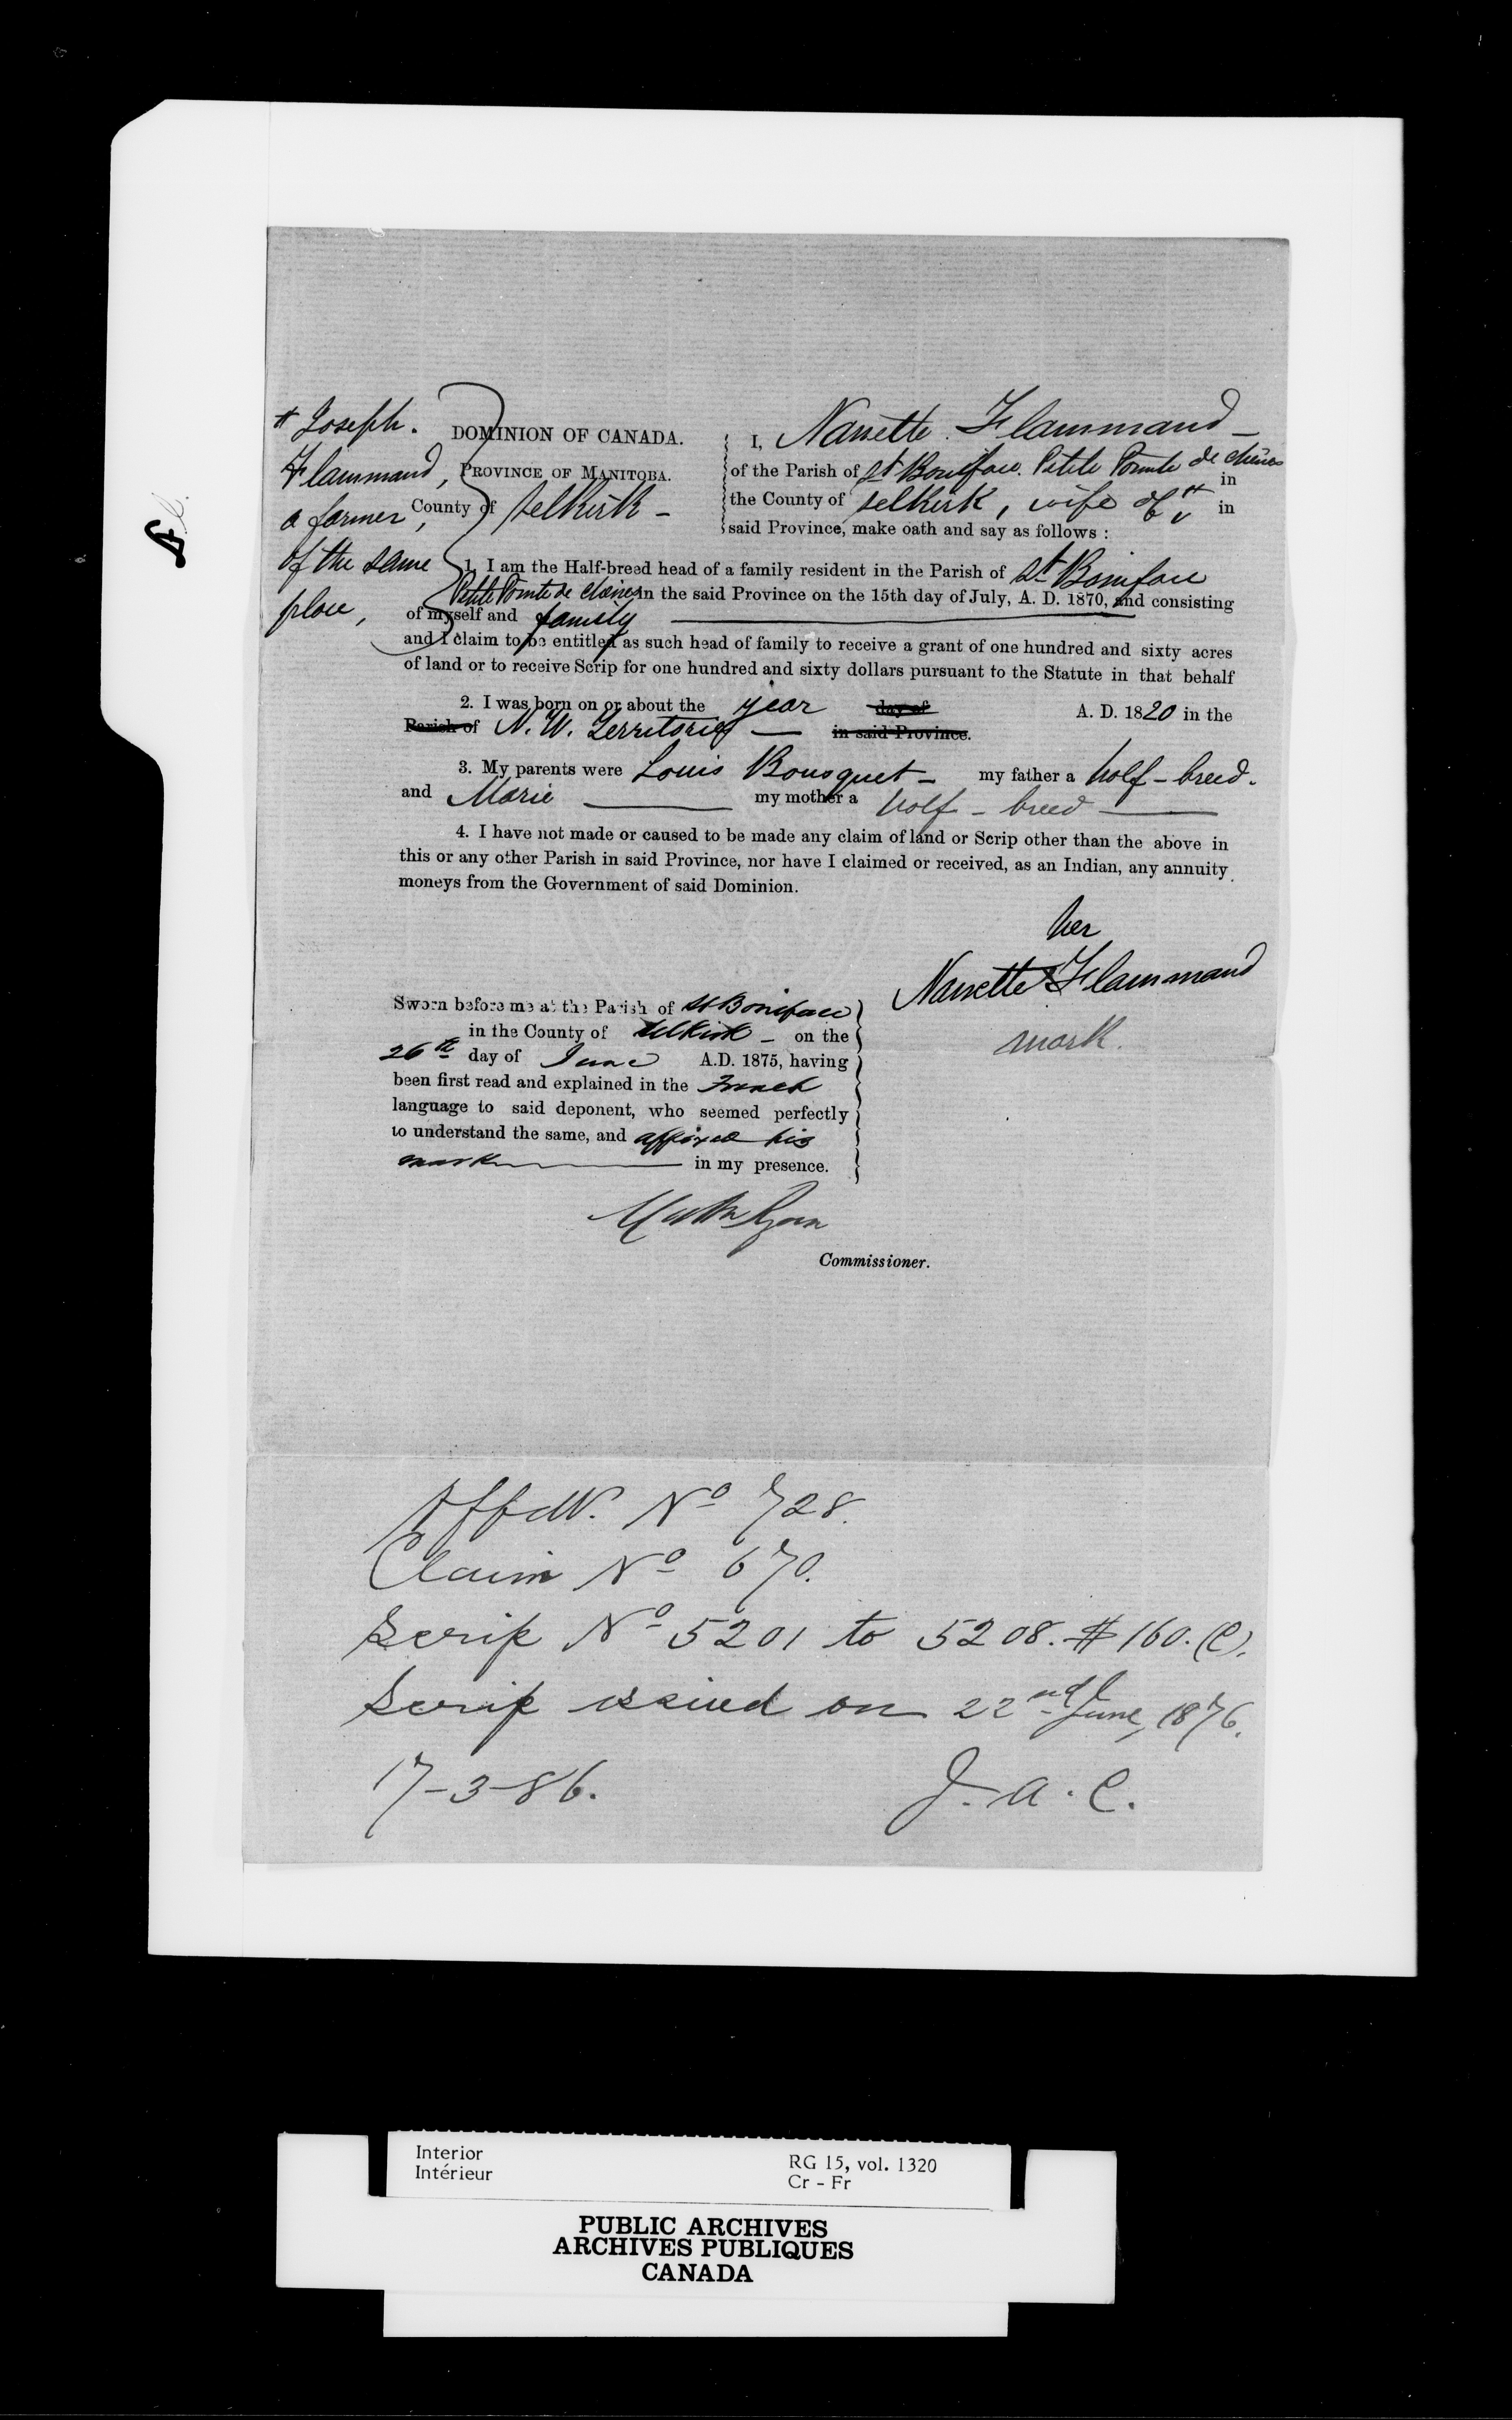 # Joseph.
Flammand,
a farmer,
of the same
place,
DOMINION OF CANADA.
PROVINCE OF MANITOBA.
County of Selkirk -
I, Nanette Flammand -
of the Parish of St Boniface Petite Pointe de chênes in
the County of Selkirk, wife of # in
said Province, make oath and say as follows :
1. I am the Half-breed head of a family resident in the Parish of St Boniface
Petite Pointe de chênes in the said Province on the 15th day of July, A. D. 1870, and consisting
of myself and family
and I claim to be entitled as such head of family to receive a grant of one hundred and sixty acres
of land or to receive Scrip for one hundred and sixty dollars pursuant to the Statute in that behalf
2. I was born on or about the year day of A. D. 1820 in the
Parish of N. W. Territories — in said Province.
3. My parents were Louis Bousquet - my father a half-breed.
and Marie — my mother a half-breed —
4. I have not made or caused to be made any claim of land or Scrip other than the above in
this or any other Parish in said Province, nor have I claimed or received, as an Indian, any annuity
moneys from the Government of said Dominion.
her
Nanette X Flammand
mark.
Sworn before me at the Parish of St Boniface
in the County of Selkirk - on the
26th day of June A.D. 1875, having
been first read and explained in the French
language to said deponent, who seemed perfectly
to understand the same, and affixed his
mark — in my presence.
Commissioner.
Affdvt. No 728.
Claim No 670.
Scrip No 5201 to 5208. $160. (C).
Scrip issued on 22nd June, 1876.
17-3-86. J. A. C.
Interior
Intérieur
RG 15, vol. 1320
Cr - Fr
PUBLIC ARCHIVES
ARCHIVES PUBLIQUES
CANADA